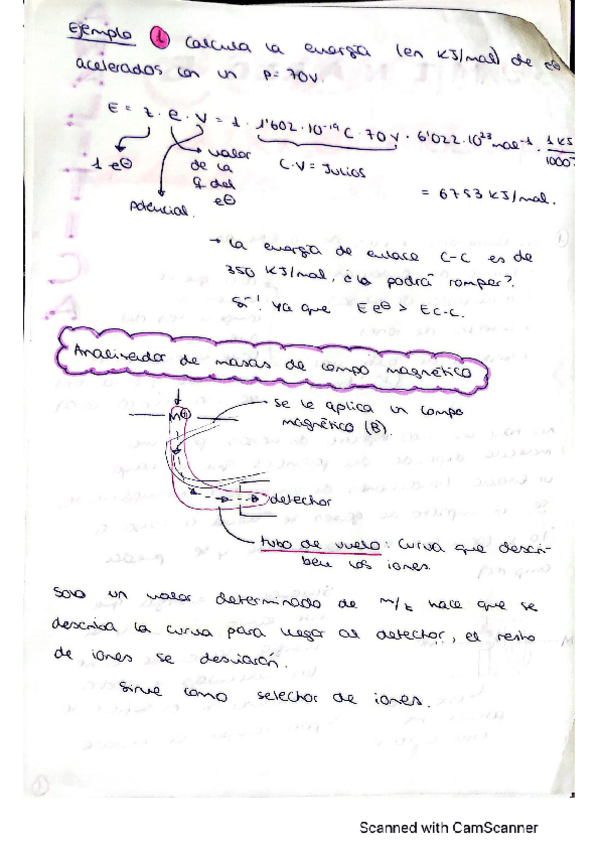 Ejemplo 1 Calcula la energía (en KJ/mol) de e⊖
acelerados con un P=70V.
E = z · e · V = 1 · 1'602·10⁻¹⁹C · 70V · 6'022·10²³mol⁻¹ · 1KJ/1000J
1 e⊖
potencial
valor
de la
q del
e⊖
C·V = Julios
= 6753 KJ/mol.
→ La energía de enlace C-C es de
350 KJ/mol, ¿la podrá romper?
Sí! Ya que E e⊖ > E C-C.
Analizador de masas de campo magnético
M⊕
se le aplica un campo
magnético (B).
detector
tubo de vuelo: curva que descri-
ben los iones.
Solo un valor determinado de m/z hace que se
describa la curva para llegar al detector, el resto
de iones se desviarán.
Sirve como selector de iones.
Scanned with CamScanner